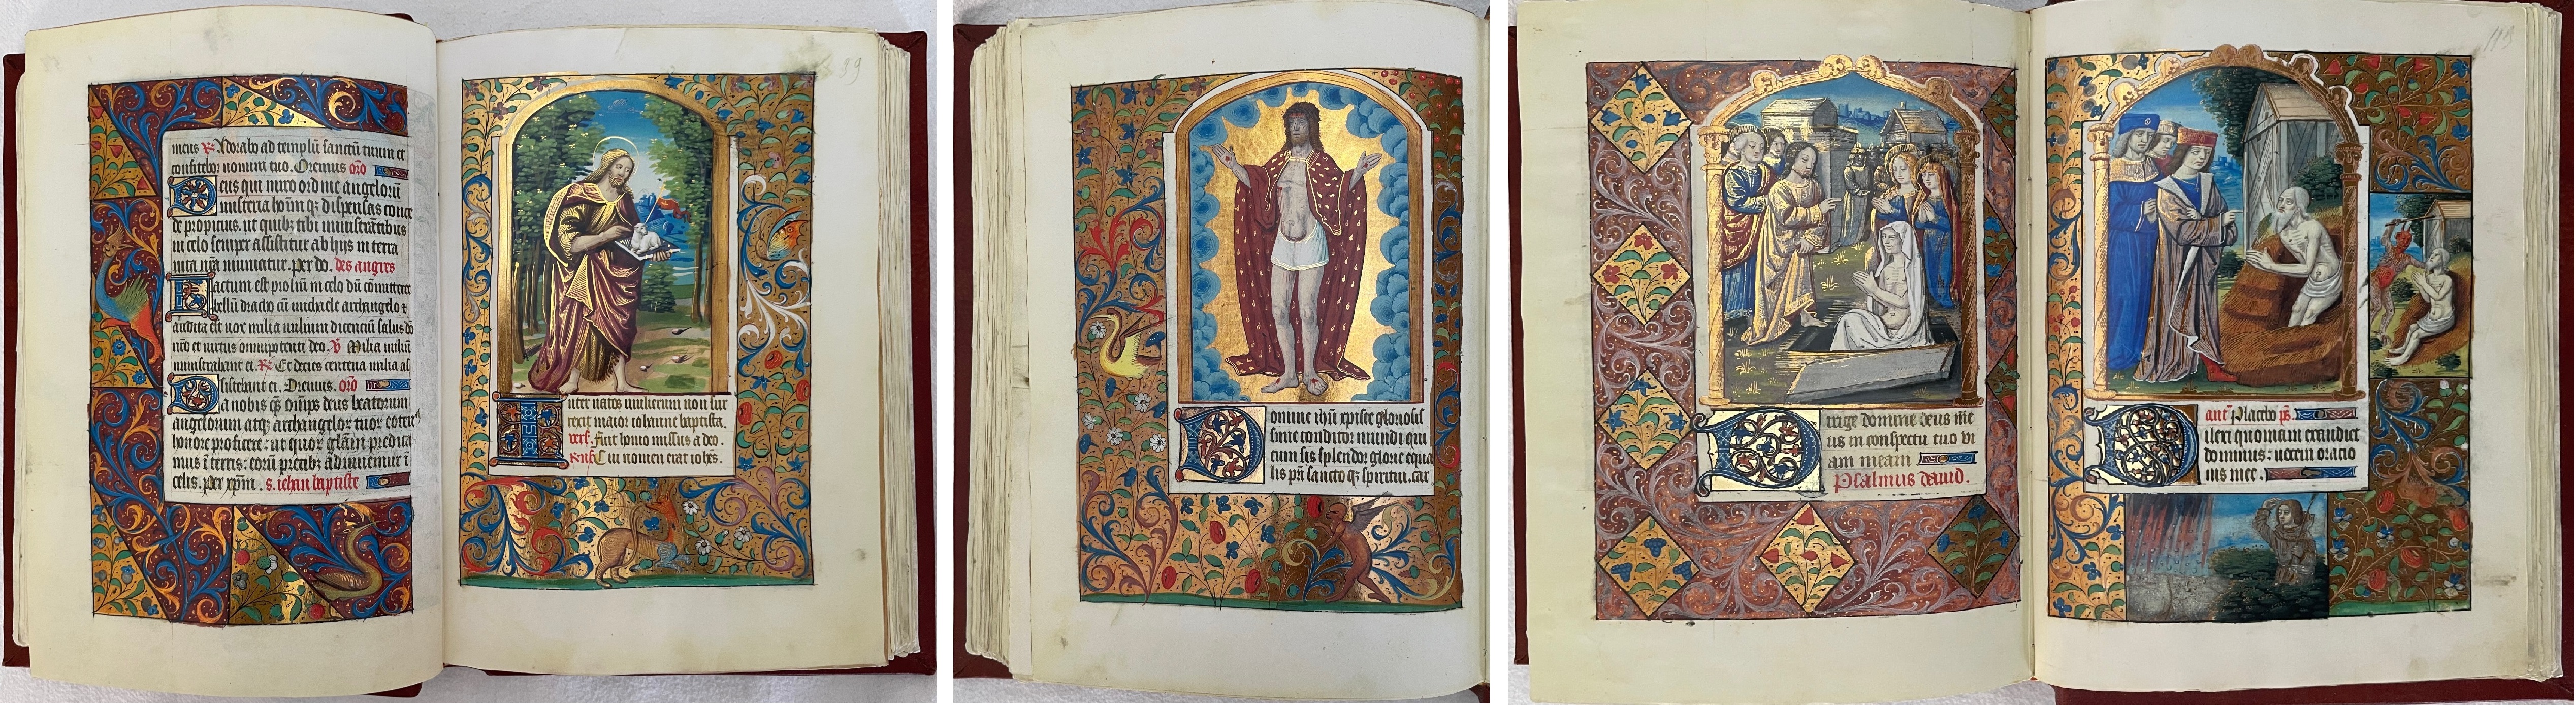 meus ℟ Adorabo ad templū sanctū tuum et
confitebor nomini tuo. Oremus oro
Deus qui miro ordine angelorū
misteria hoīm qʒ dispensas conce
de propicius. ut quibʒ tibi ministrātibus
in celo semper assistitur ab hijs in terra
uita nr̄a muniatur. per do. des angres
Factum est preliū in celo dū cōmitteret
bellū draco cū michaele archangelo ⁊
audita est uox milia milium dicenciū salus dō
nr̄o et uirtus omnipotenti deo. ℣ Milia miliū
ministrabant ei. ℟ Et decies centena milia as
sistebant ei. Oremus. oro
Da nobis qs̄ om̄ps deus beatorum
angelorum atqʒ archangelor tuor eorū
honore proficere: ut quor glām predica
mus ī terris: eorū precibʒ adiuuemur ī
celis. per xp̄m. s. iehan baptiste
89
Inter natos mulierum non sur
rexit maior iohanne baptista.
vers. fuit homo missus a deo.
Rns̄ Cui nomen erat iohēs.
Domine ihū xpiste gloriosis
sime conditor mundi qui
cum sis splendor glorie equa
lis pr̄i sancto qʒ spiritui. car
Dirige domine deus me
us in conspectu tuo vi
am meam
Psalmus dauid.
113
ant̄ Placebo ps̄.
Dilexi quoniam exaudiet
dominus: uocem oracio
nis mee.